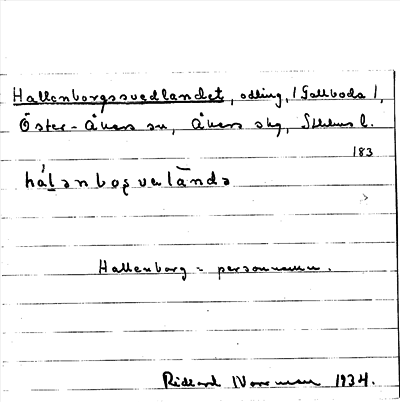 Hallenborgssvedlandet, odling, (Gallboda),
Öster-Åkers sn, Åkers skg, Sthlms l.
183
hálənboʂveləndə
Hallenborg = personnamn.
Rickard Norrman 1934.